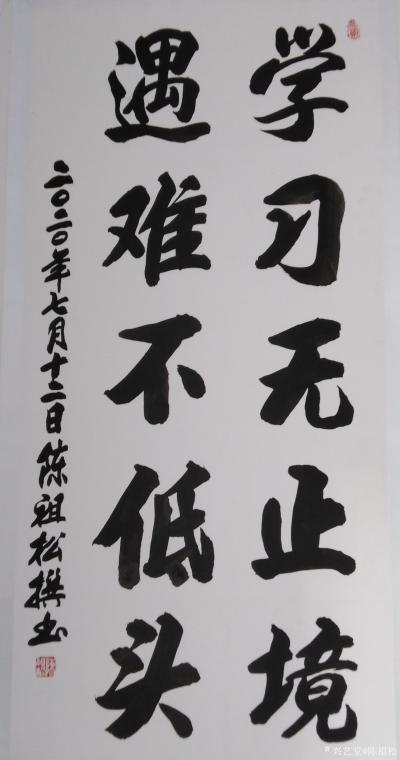 学习无止境
遇难不低头
二〇二〇年七月十二日陈祖松撰书
兴艺堂@陈祖松